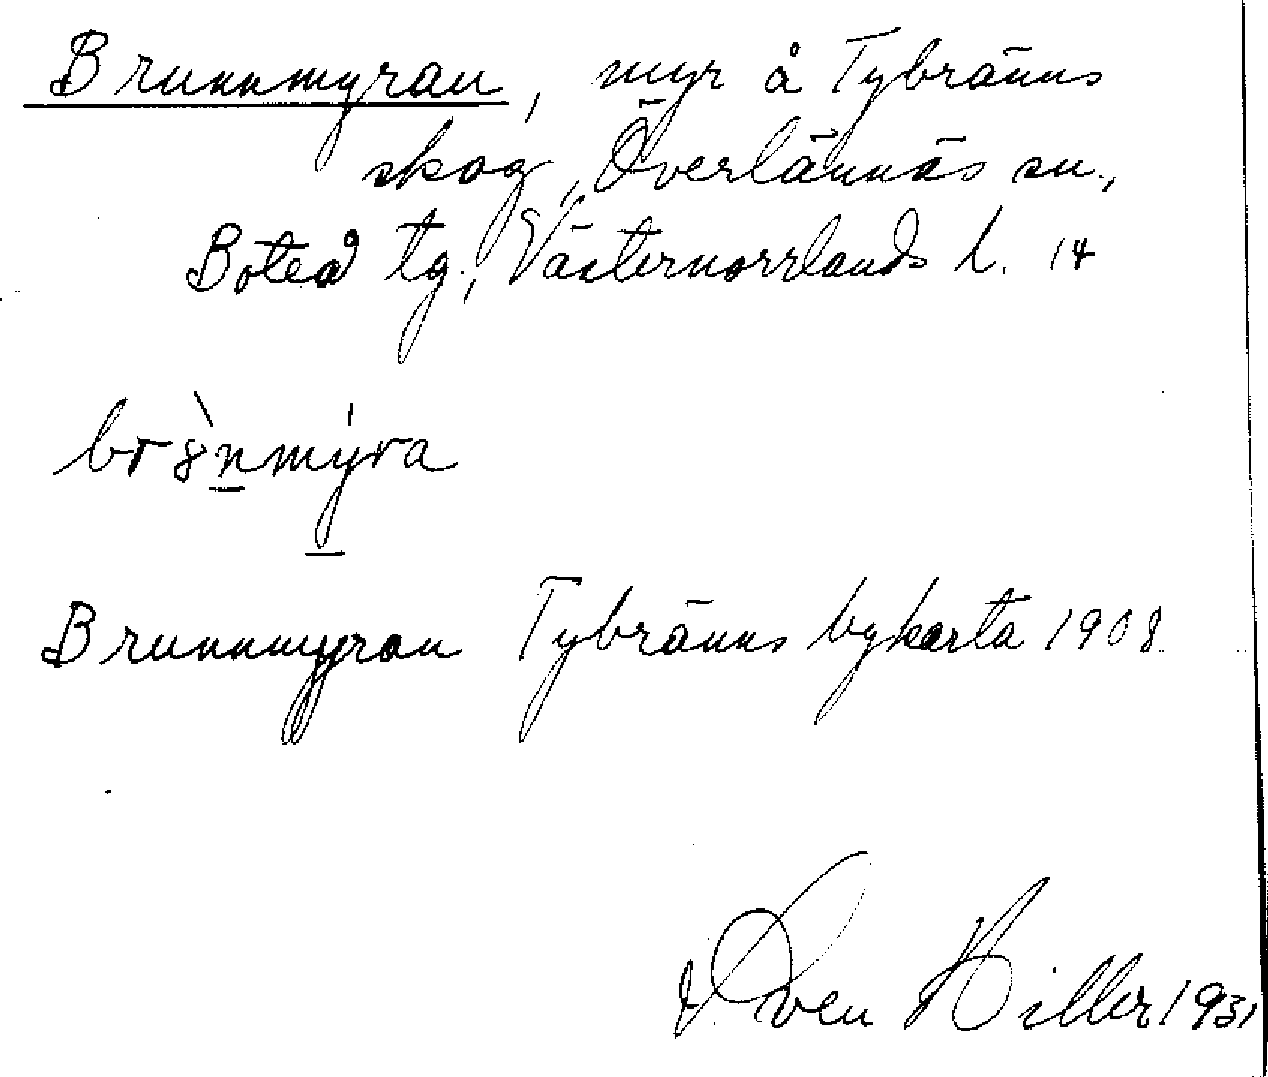 Brunnmyran, myr å Tybränns
skog, Överlännäs sn.,
Boteå tg., Västernorrlands l. 14
br8̀nmýra
Brunnmyran Tybränns bykarta 1908.
Sven Hiller 1931